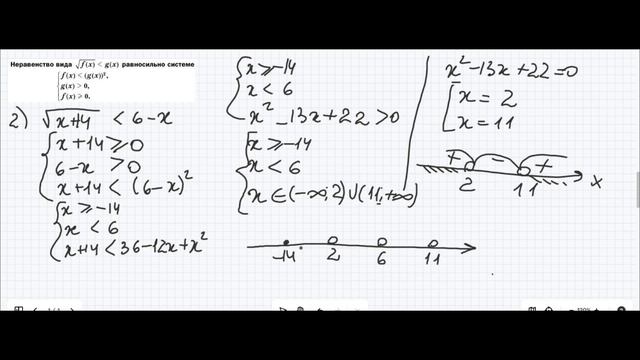 Неравенство вида √f(x) < g(x) равносильно системе
{ f(x) < (g(x))²,
g(x) > 0,
f(x) ⩾ 0.
2) √x+14 < 6-x
{ x+14 ⩾ 0
6-x > 0
x+14 < (6-x)²
{ x ⩾ -14
x < 6
x+14 < 36-12x+x²
{ x ⩾ -14
x < 6
x² -13x+22 > 0
{ x ⩾ -14
x < 6
x ∈ (-∞; 2) ∪ (11; +∞)
-14 2 6 11
x² -13x+22 = 0
[ x = 2
x = 11
+ - +
2 11 x